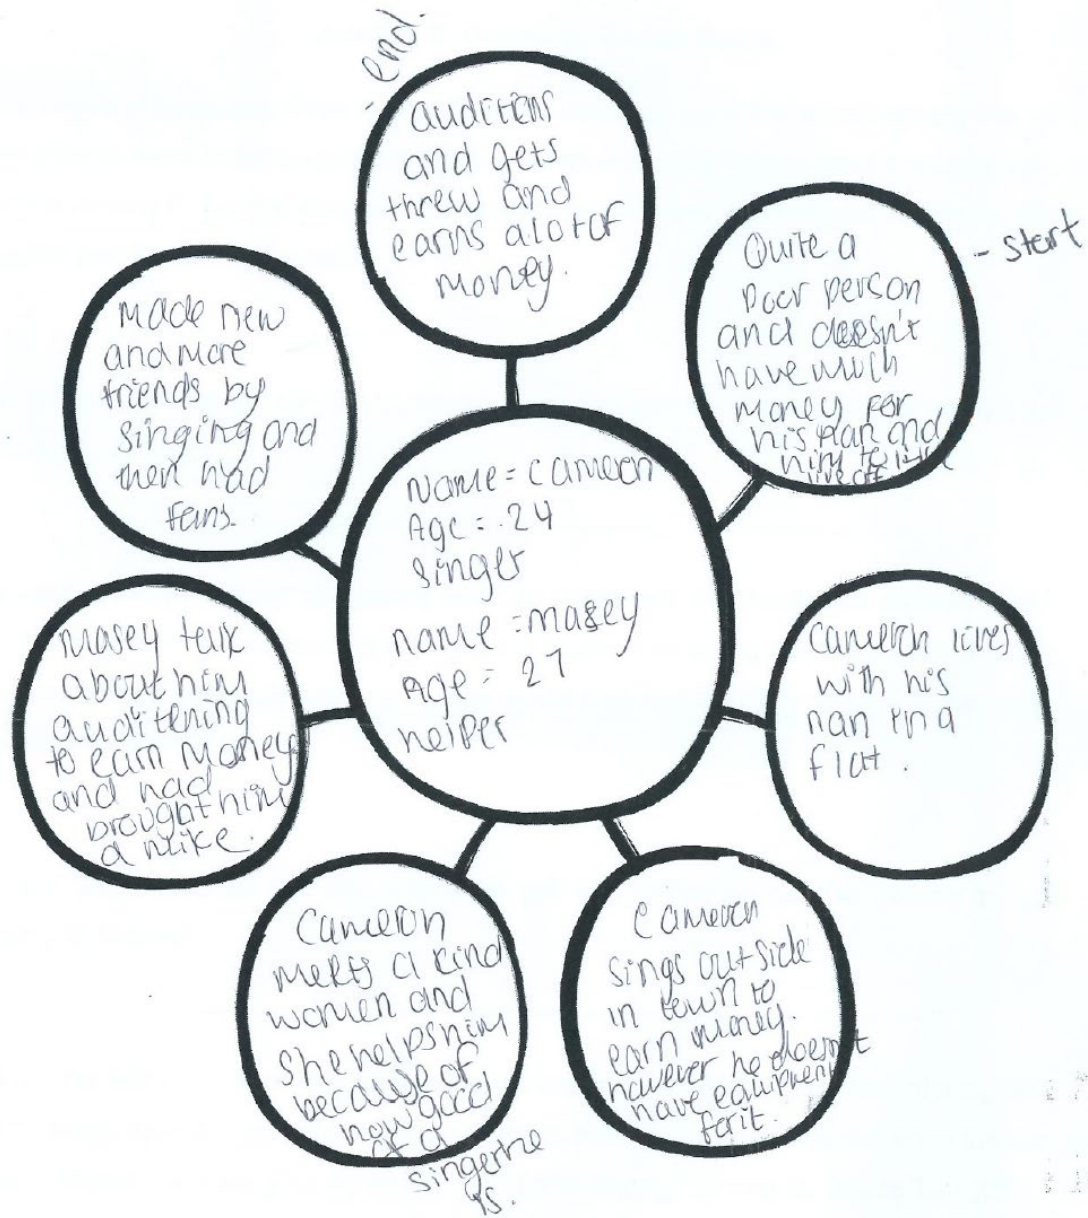 - end.
auditions
and gets
threw and
earns a lot of
money.
- start
Quite a
poor person
and doesn't
have much
money for
his nan and
him to
live off
Cameron lives
with his
nan in a
flat.
Cameron
sings outside
in town to
earn money.
however he doesn't
have equipment
for it.
Cameron
meets a kind
women and
she helps him
because of
how good
of a
singer he
is.
Masey talk
about him
auditening
to earn money
and had
brought him
a mike.
Made new
and more
friends by
singing and
then had
fans.
Name = Cameron
Age = 24
singer
name = masey
Age = 27
helper